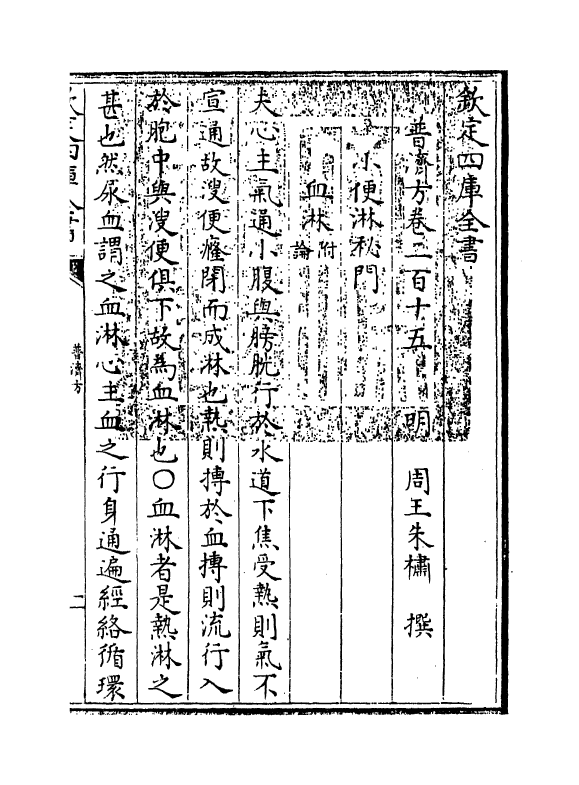 欽定四庫全書
普濟方卷二百十五　明　周王朱橚　撰
小便淋秘門
血淋附論
夫心主氣通小腹與膀胱行於水道下焦受熱則氣不
宣通故溲便癃閉而成淋也熱則搏於血搏則流行入
於胞中與溲便俱下故為血淋也〇血淋者是熱淋之
甚也然尿血謂之血淋心主血之行身通遍經絡循環
欽定四庫全書
普濟方